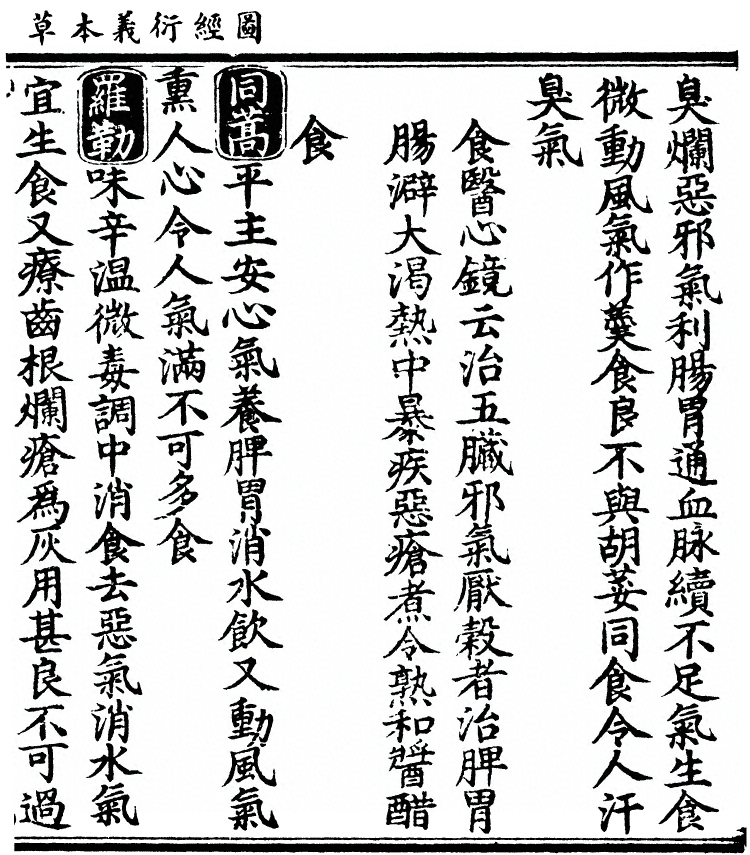 圖經衍義本草
臭爛惡邪氣利腸胃通血脉續不足氣生食
微動風氣作羹食良不與胡荽同食令人汗
臭氣
食醫心鏡云治五臟邪氣厭穀者治脾胃
腸澼大渴熱中暴疾惡瘡煮令熟和醬醋
食
同蒿平主安心氣養脾胃消水飲又動風氣
熏人心令人氣滿不可多食
羅勒味辛温微毒調中消食去惡氣消水氣
宜生食又療齒根爛瘡爲灰用甚良不可過